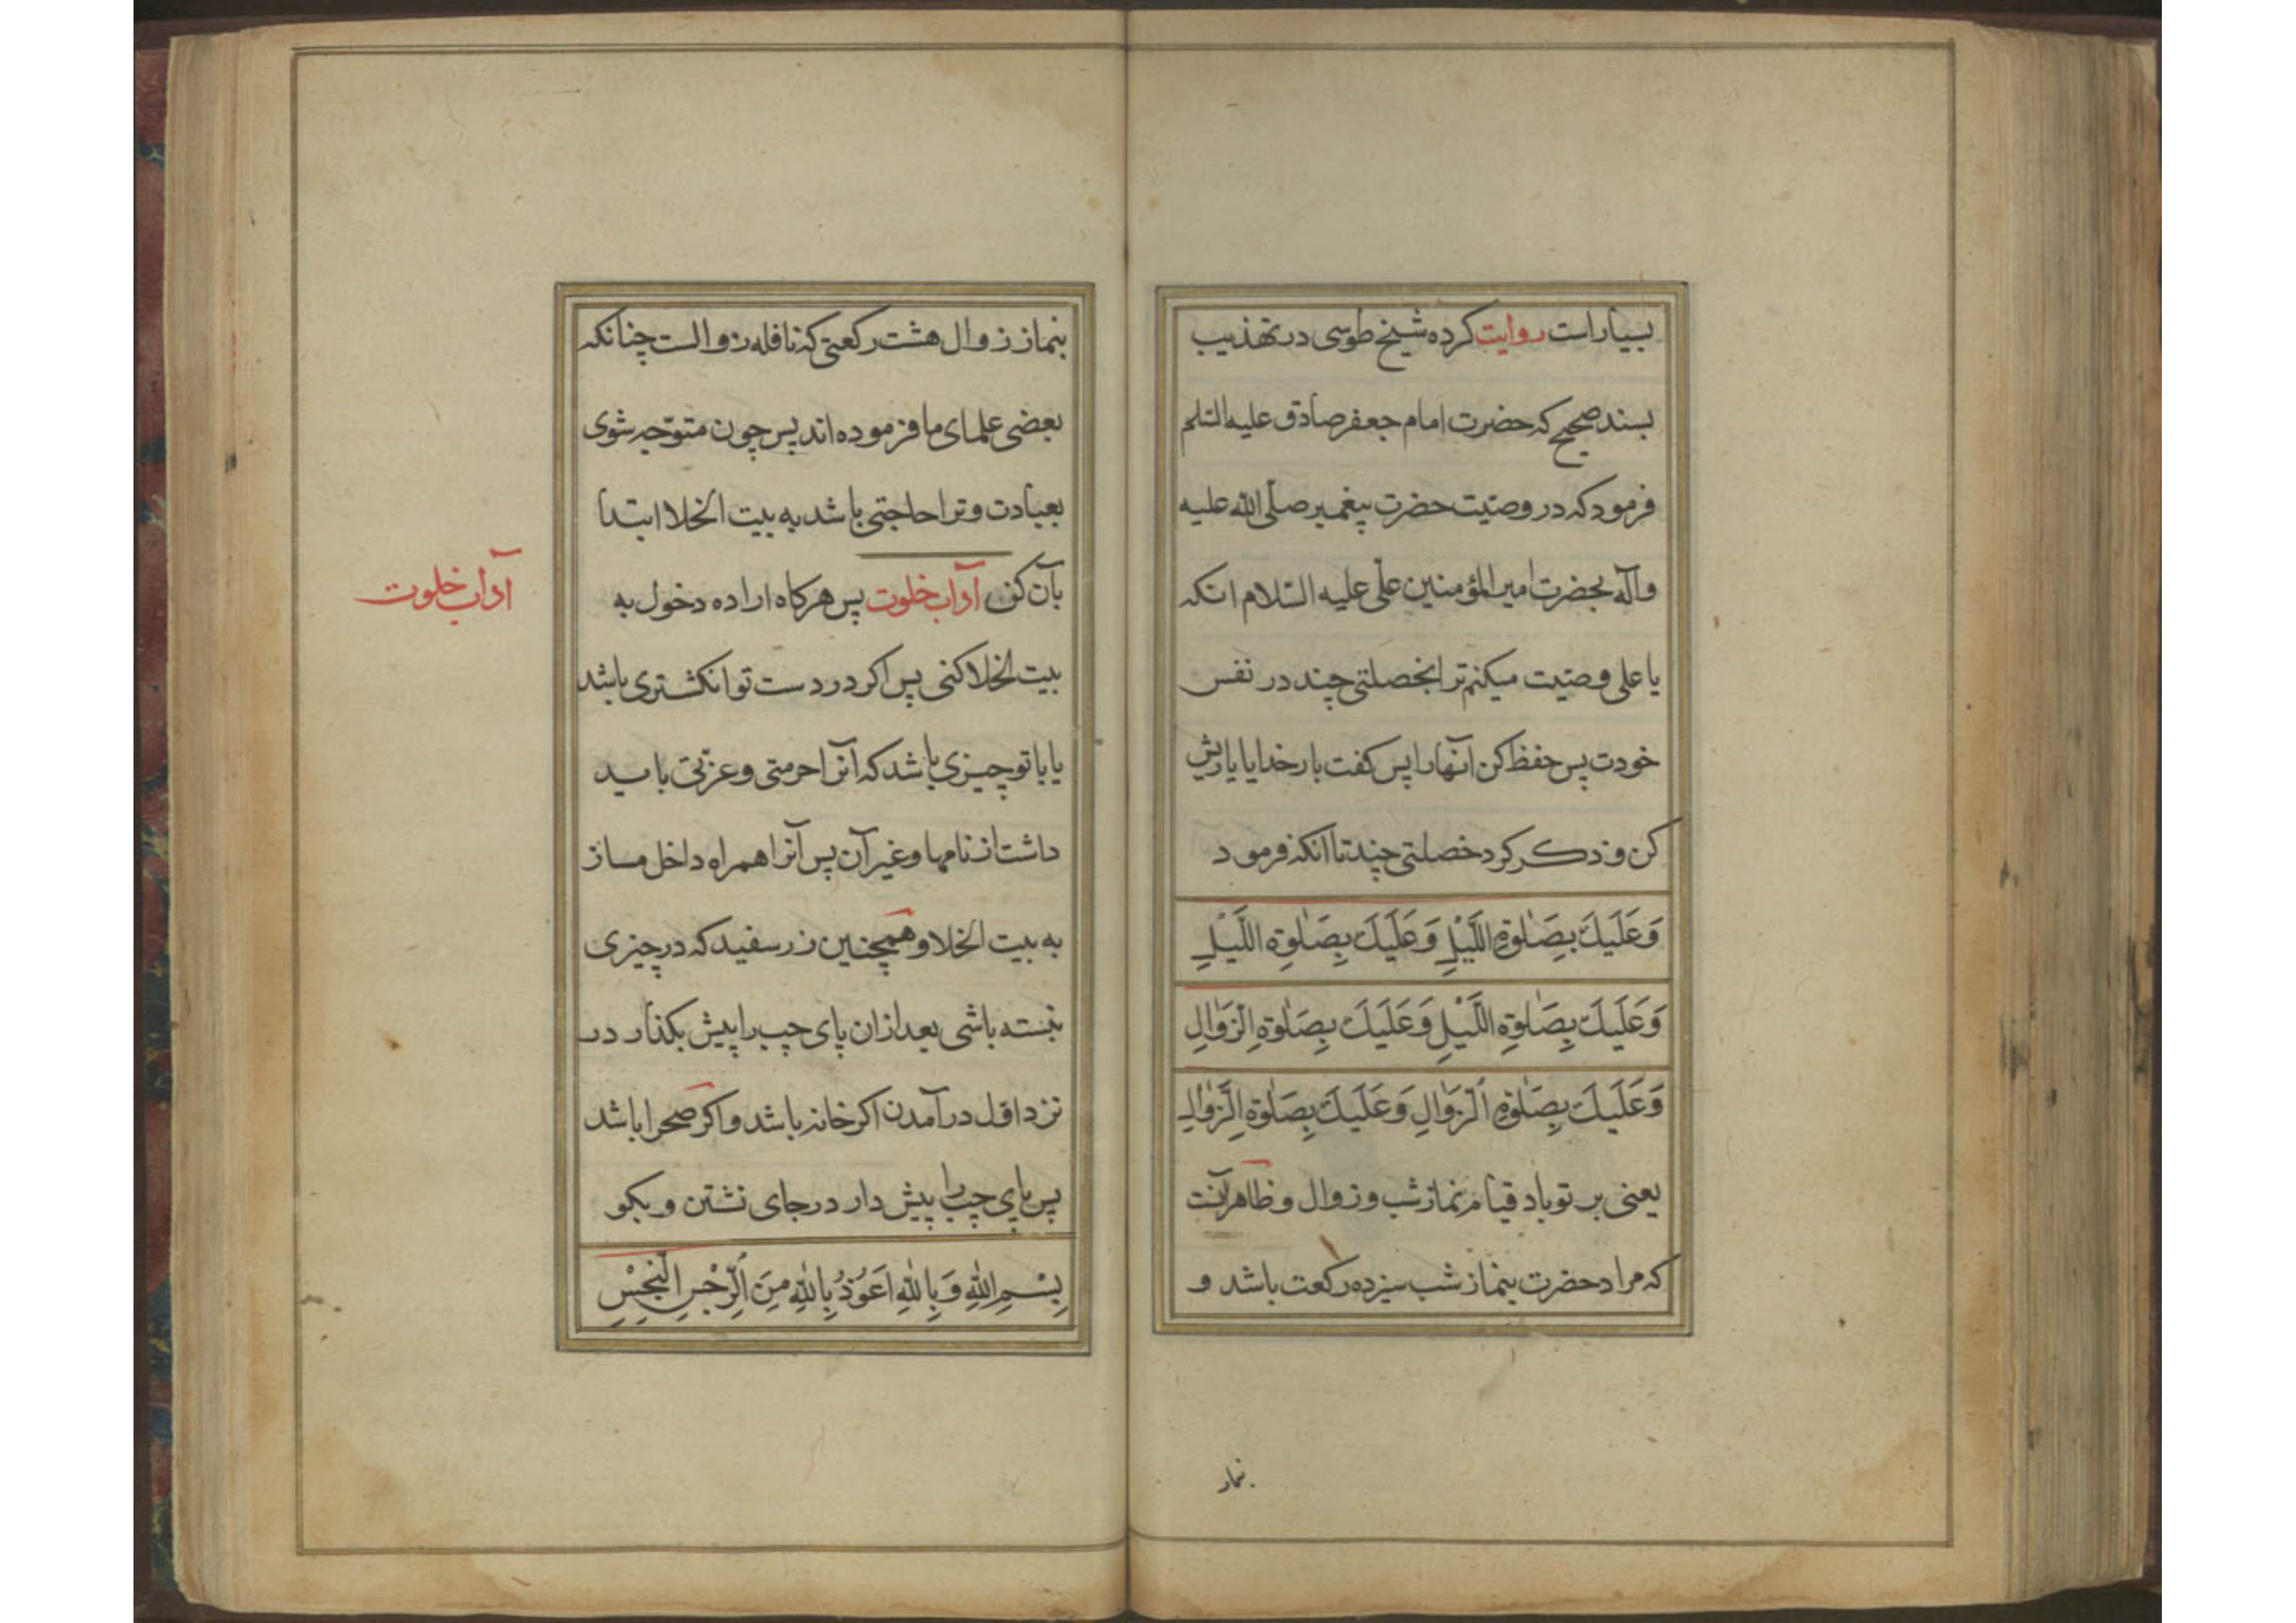 بسیار است روایت کرده شیخ طوسی در تهذیب
بسند صحیح که حضرت امام جعفر صادق علیه السلم
فرمود که در وصیت حضرت پیغمبر صلّی الله علیه
وآله بحضرت امیر المؤمنین علی علیه السّلام انکه
یا علی وصیت میکنم ترا بخصلتی چند در نفس
خودت پس حفظ کن آنها را پس کفت بار خدایا یاریش
کن و ذکر کرد خصلتی چند تا انکه فرمود
وَعَلَیكَ بِصَلٰوةِ اللَّیْلِ وَعَلَیكَ بِصَلٰوةِ اللَّیْلِ
وَعَلَیكَ بِصَلٰوةِ اللَّیْلِ وَعَلَیكَ بِصَلٰوةِ الزَّوٰالِ
وَعَلَیكَ بِصَلٰوةِ الزَّوٰالِ وَعَلَیكَ بِصَلٰوةِ الزَّوٰالِ
یعنی بر تو باد قیام نماز شب و زوال و ظاهر آنست
که مراد حضرت بنماز شب سیزده رکعت باشد و
نماز
بنماز زوال هشت رکعتی که نافله زوالست چنانکه
بعضی علمای ما فرموده اند پس چون متوجّه شوی
بعبادت و ترا حاجتی باشد به بیت الخلا ابتدا
بآن کن آداب خلوت پس هرکاه اراده دخول به
آداب خلوت
بیت الخلا کنی پس اکر در دست تو انکشتری باشد
یا با تو چیزی باشد که آنرا حرمتی و عزّتی باید
داشت از نامها و غیر آن پس آنرا همراه داخل مساز
به بیت الخلا و همچنین زر سفید که در چیزی
نبسته باشی بعد از ان پای چپ را پیش بکذار در
نزد اوّل در آمدن اکر خانه باشد و اکر صحرا باشد
پس پای چپ را پیش دار در جای نشتن و بکو
بِسْمِ اللهِ وَبِاللهِ اَعُوذُ بِاللهِ مِنَ الرِّجْسِ النَّجِسِ